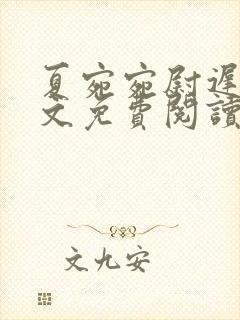 夏宛宛尉遲
文免費閱讀
文九安